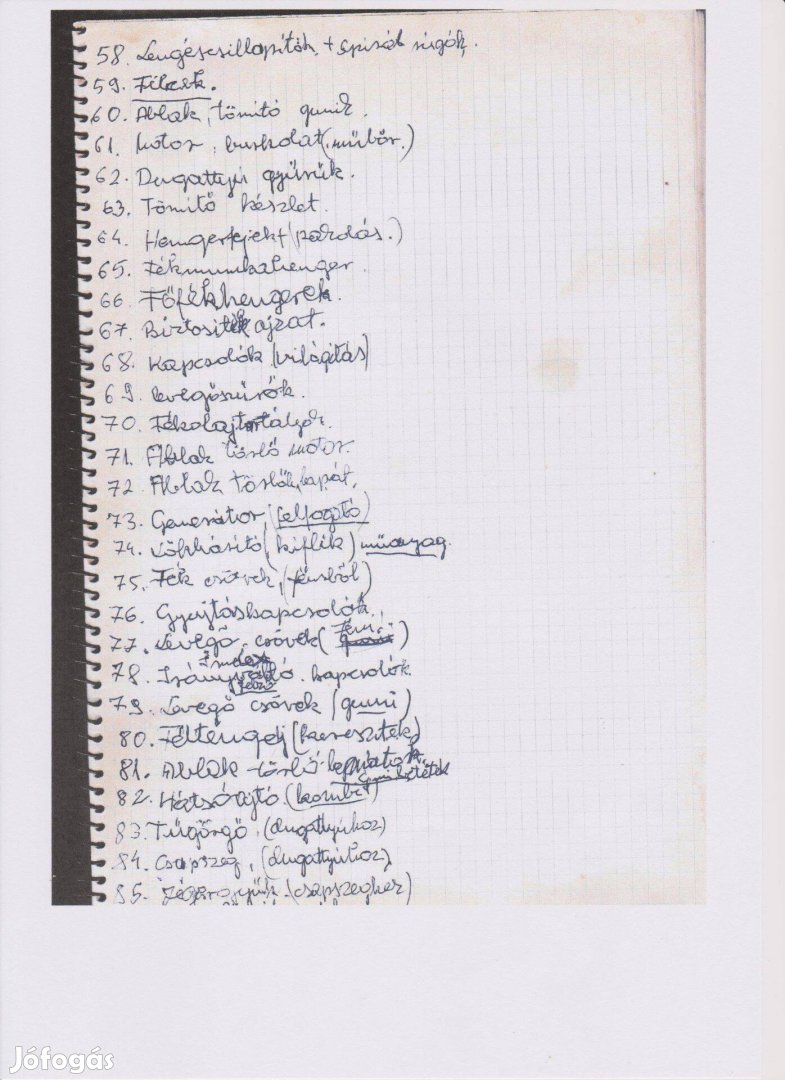 58. Lengéscsillapítók, + spirál rúgók.
59. Filcek.
60. Ablak, tömítő gumik.
61. Motor, burkolat (műbőr.)
62. Dugattyú gyűrűk.
63. Tömítő készlet.
64. Hengerfejek + (pakolás.)
65. Fékmunkahenger.
66. Főfékhengerek.
67. Biztosíték ajzat.
68. Kapcsolók (világítás)
69. Levegőszűrők.
70. Fékolajtartályok.
71. Ablak törlő motor.
72. Ablak törlők, lapát.
73. Generátor, (felfogató)
74. Lökhárító (kiflik) műanyag.
75. Fék csövek, (fémből)
76. Gyujtáskapcsolók.
77. Levegő csövek (Fém.)
78. Index kapcsolók
79. Levegő csövek (gumi)
80. Féltengely (keresztek)
81. Ablak törlő
82. Hátsó ajtó. (kombi)
83. Tűgörgő, (dugattyúhoz)
84. Csapszeg, (dugattyúhoz)
85. Zégergyűrűk (csapszeghez)
Jófogás